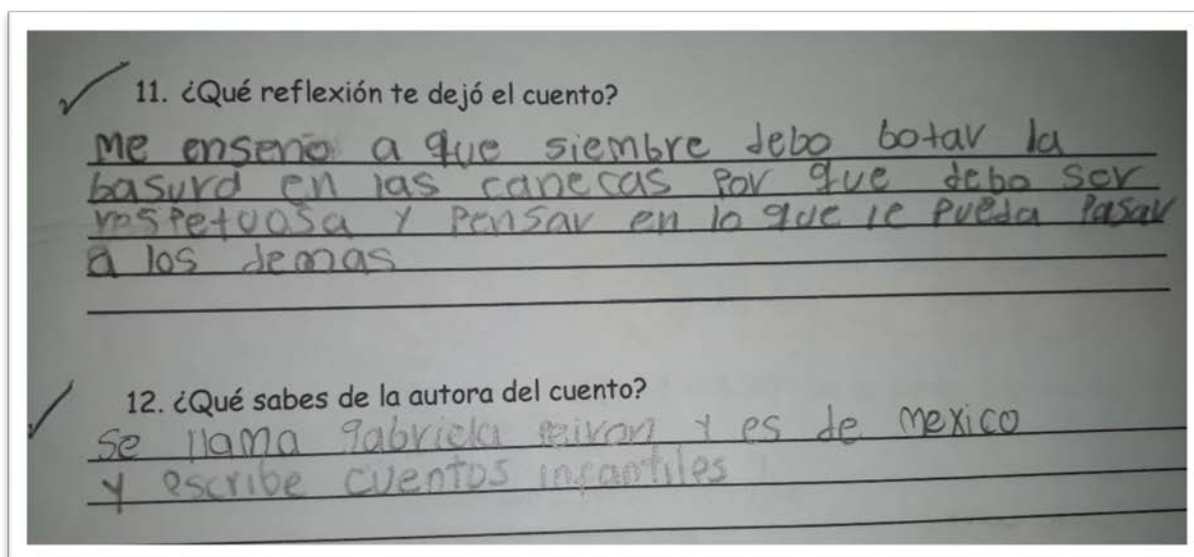 11. ¿Qué reflexión te dejó el cuento?
Me enseño a que siembre debo botar la
basura en las canecas por que debo ser
respetuosa y pensar en lo que le pueda pasar
a los demas
12. ¿Qué sabes de la autora del cuento?
se llama gabriela y es de mexico
y escribe cuentos infantiles